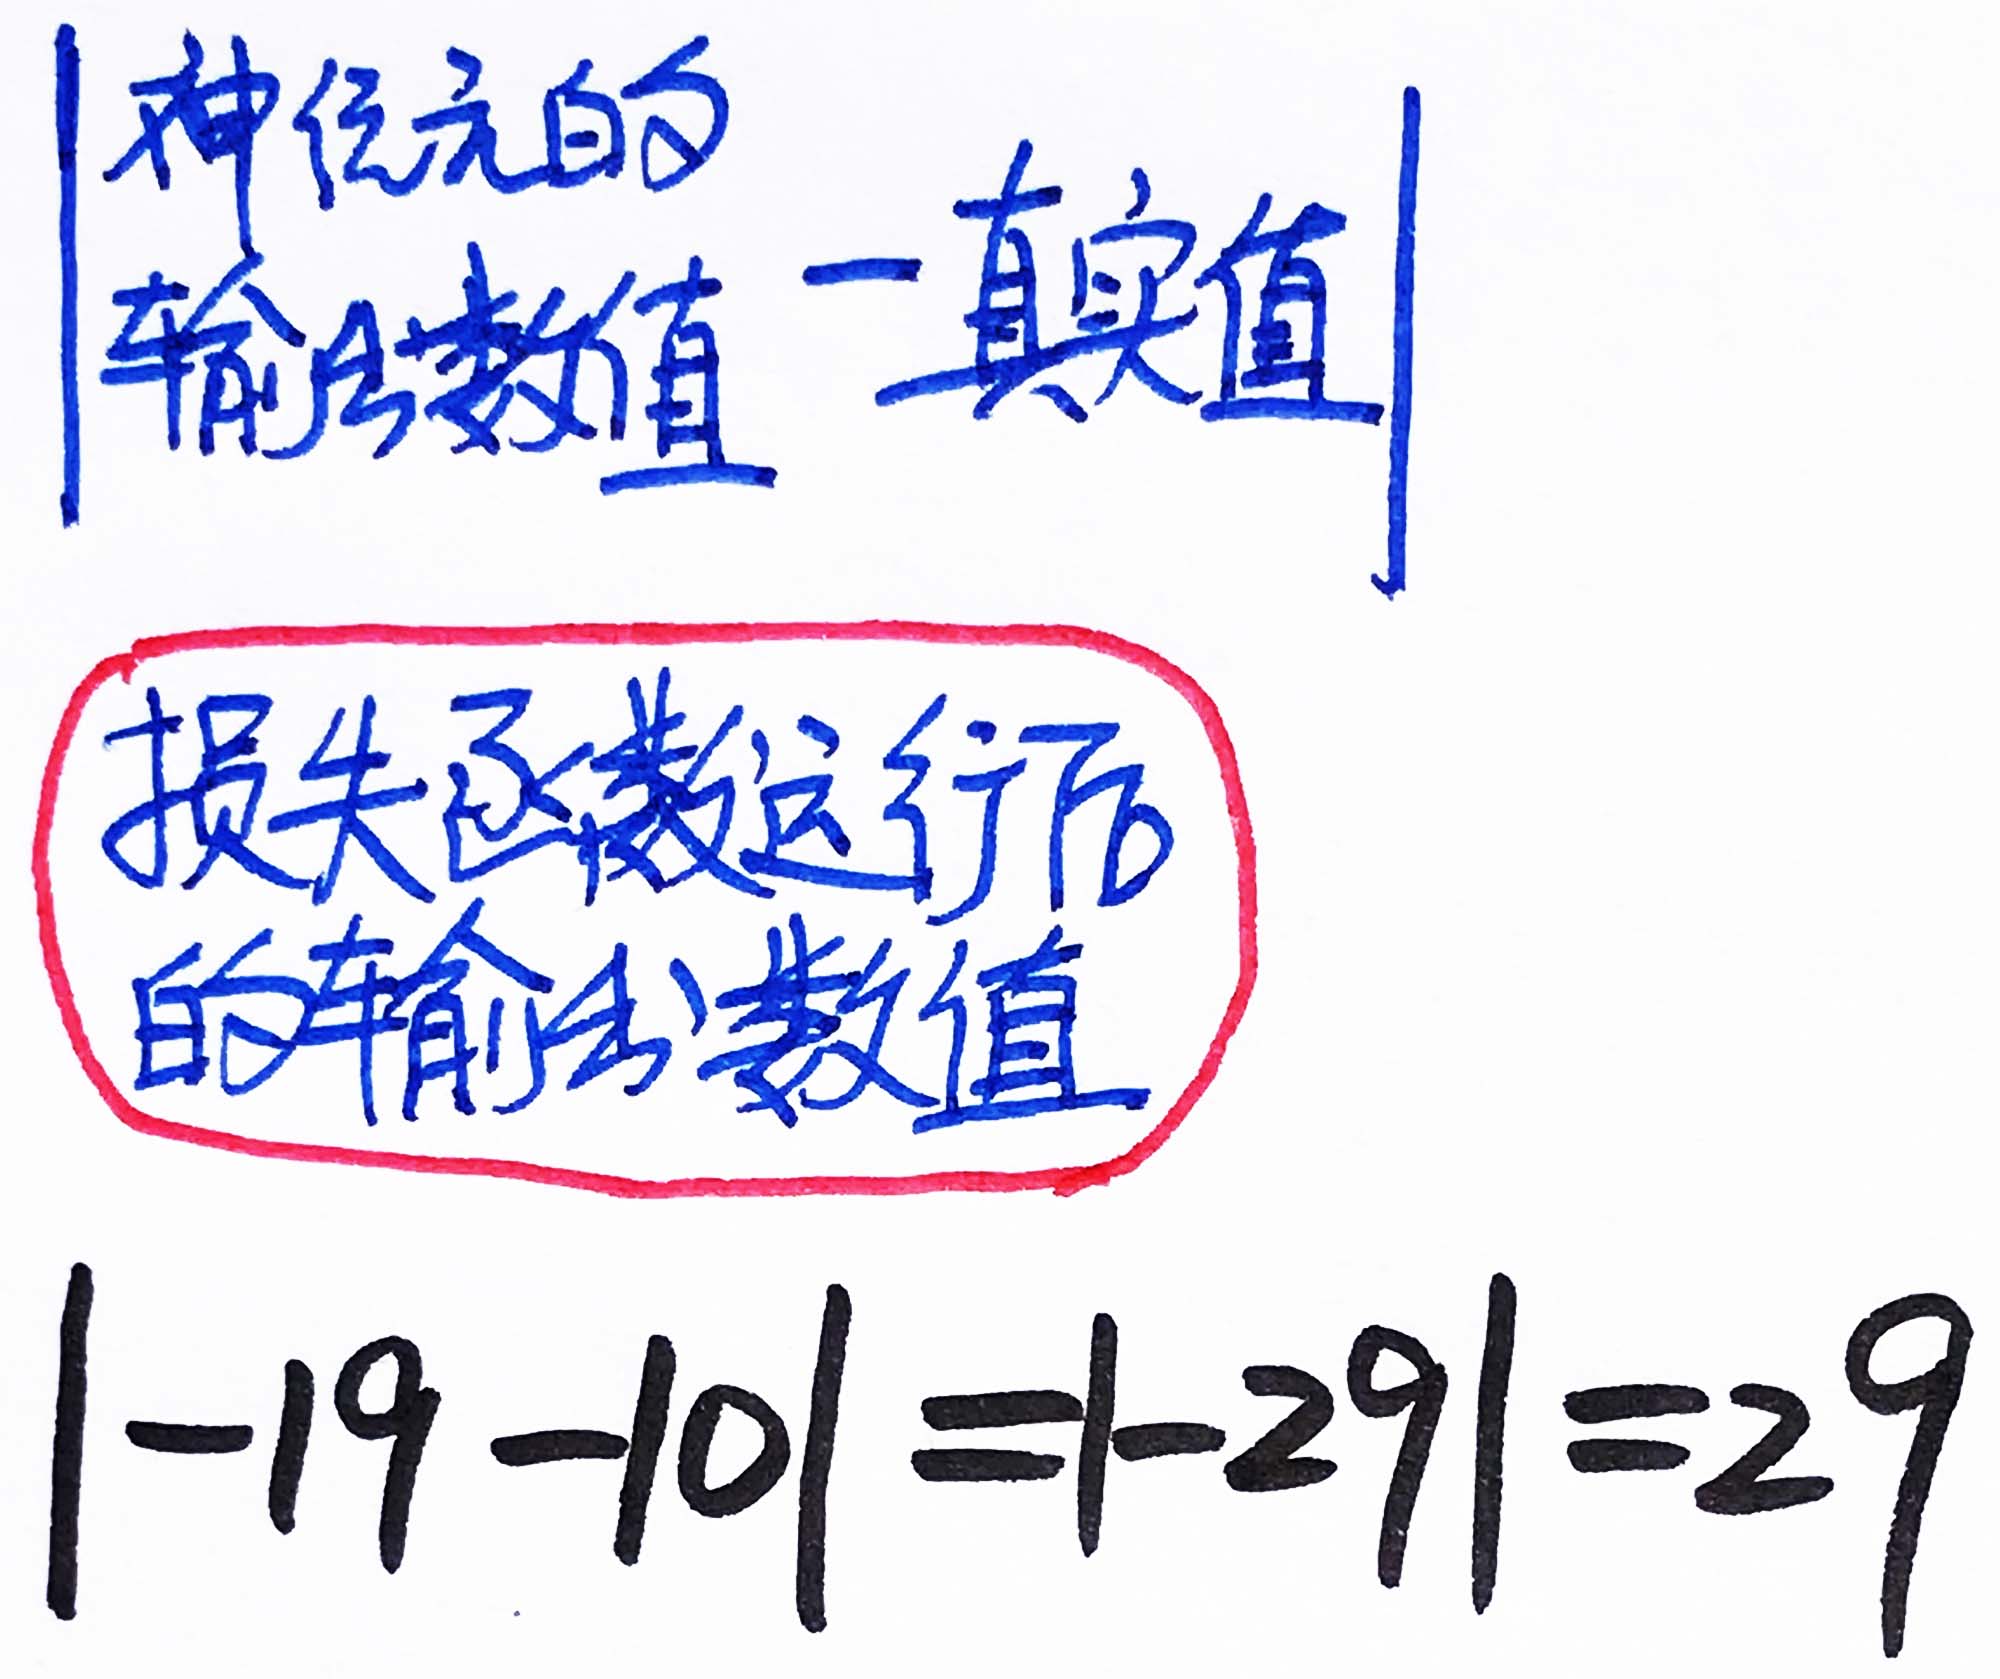 |神经元的
输出数值 - 真实值|
损失函数运行后
的输出数值
|-19-10|=|-29|=29